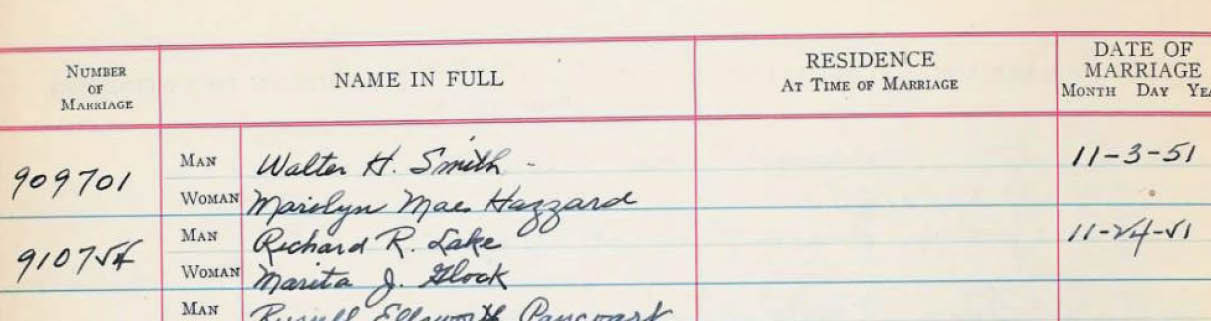 NUMBER OF MARRIAGE NAME IN FULL RESIDENCE AT TIME OF MARRIAGE DATE OF MARRIAGE MONTH DAY
909701 MAN Walter H. Smith 11-3-51
WOMAN Marilyn Mae Hazzard
910754 MAN Richard R. Lake 11-24-51
WOMAN Marita J. Glock
MAN Russell Ellsworth